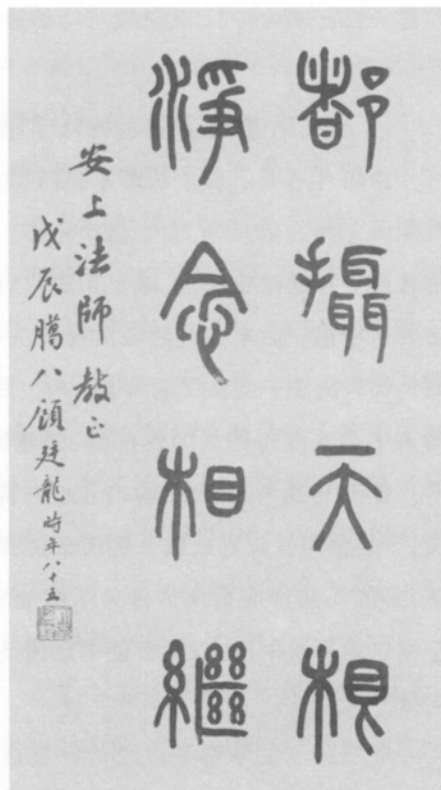 都攝六根
淨念相繼
安上法師 教正
戊辰臘八顧廷龍時年八十五